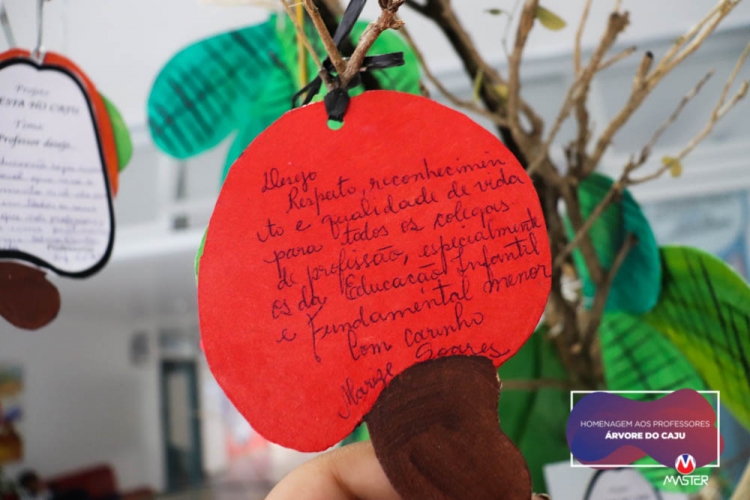 Projeto
FESTA NO CAJU
Tema
Professor deseja...
Desejo
Respeito, reconhecimen
to e qualidade de vida
para todos os colegas
de profissão, especialmente
os da Educação Infantil
e Fundamental menor
Com carinho
Marize Soares
HOMENAGEM AOS PROFESSORES
ÁRVORE DO CAJU
MASTER